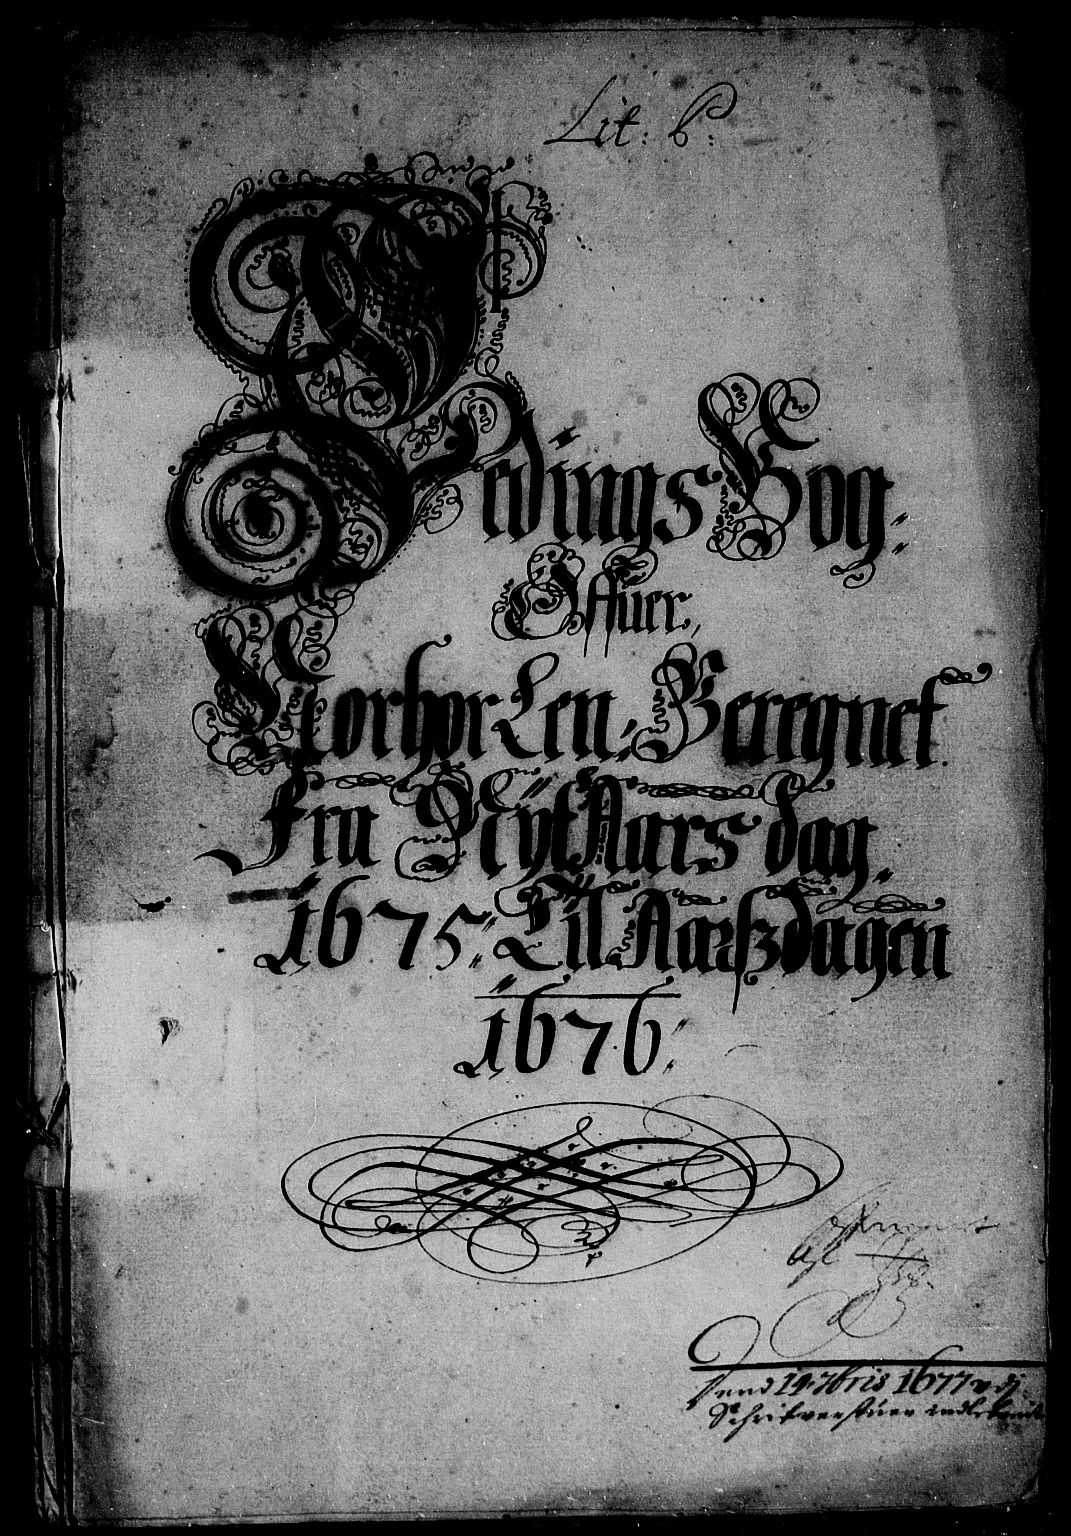 Lit: B:
Tedings Bog:
Offuer,
Norhor Len, Beregnet
fra Nyt Aars dag,
1675: Til Aarsz dagen
1676:
1677